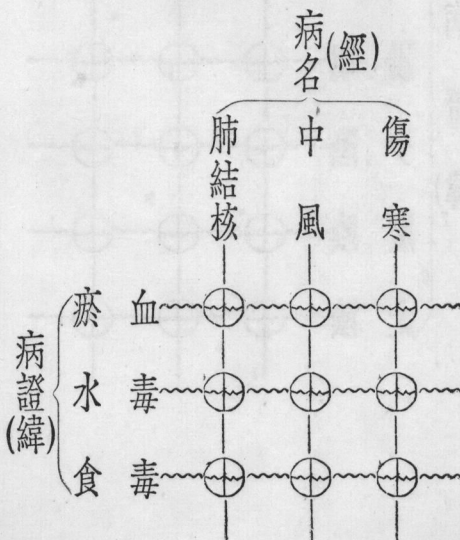 病名(經)
傷寒
中風
肺結核
病證(緯)
瘀血
水毒
食毒